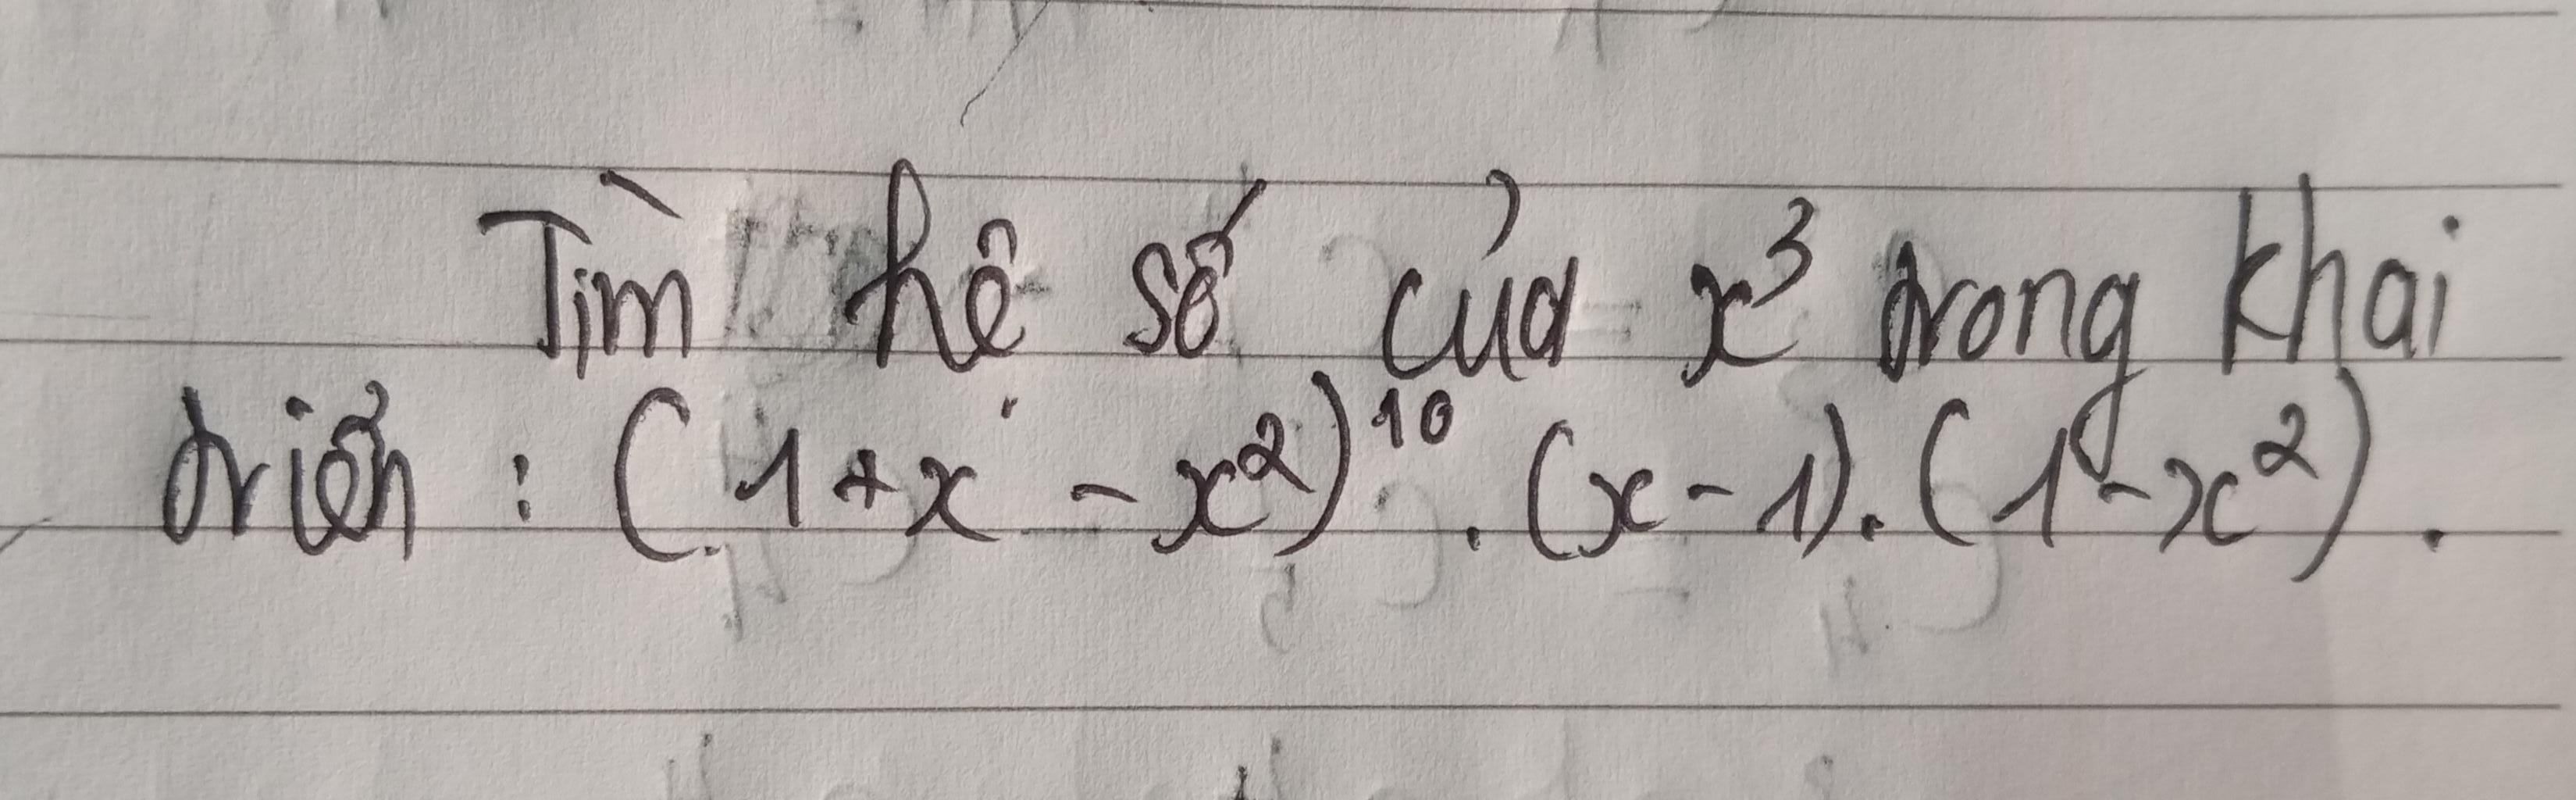 Tìm hệ số của x³ trong khai
triển : (1 + x - x²)¹⁰ . (x - 1) . (1 - x²) .